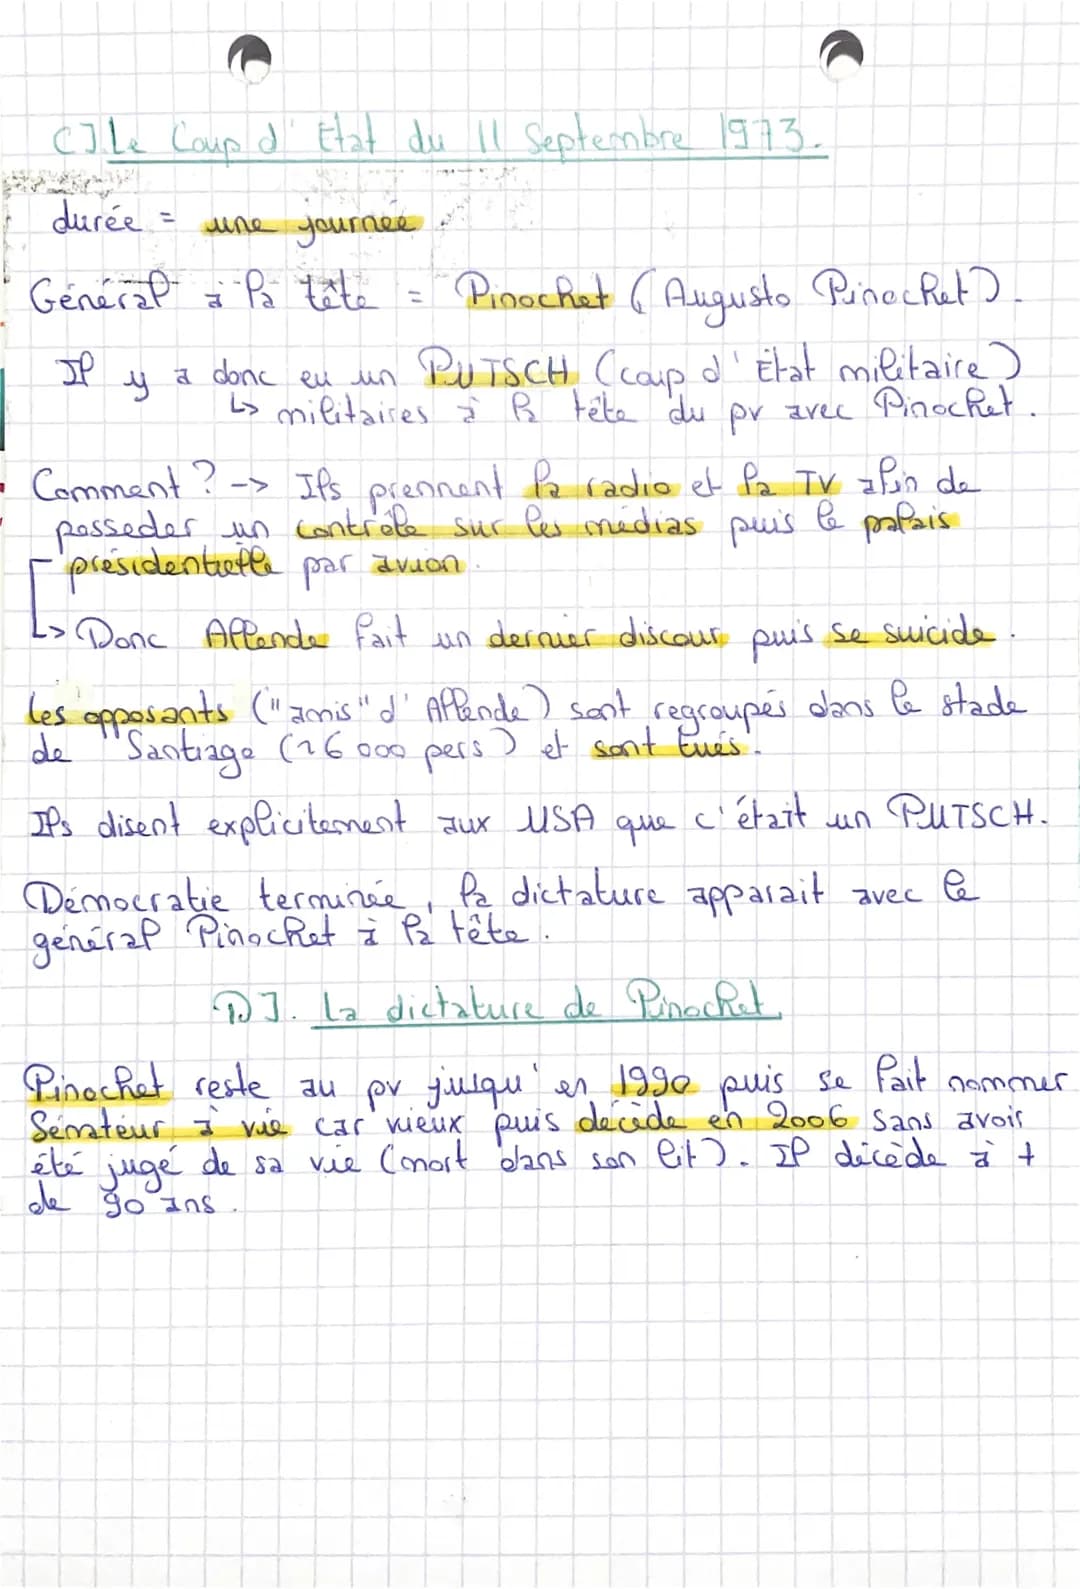 C]. Le Coup d'État du 11 Septembre 1973.
durée = une journée.
Général à la tête = Pinochet (Augusto Pinochet).
Il y a donc eu un PUTSCH (coup d'État militaire)
↳ militaires à la tête du pv avec Pinochet.
Comment ? --> Ils prennent la radio et la TV afin de
posseder un contrôle sur les médias puis le palais
présidentielle par avion.
↳ Donc Allende fait un dernier discour puis se suicide.
Les opposants ("amis" d'Allende) sont regroupés dans le stade
de Santiago (~6 000 pers) et sont tués.
Ils disent explicitement aux USA que c'était un PUTSCH.
Démocratie terminée, la dictature apparait avec le
général Pinochet à la tête.
D]. La dictature de Pinochet.
Pinochet reste au pv jusqu'en 1990 puis se fait nommer
Sénateur à vie car vieux puis décède en 2006 sans avoir
été jugé de sa vie (mort dans son lit). Il décède à +
de 90 ans.